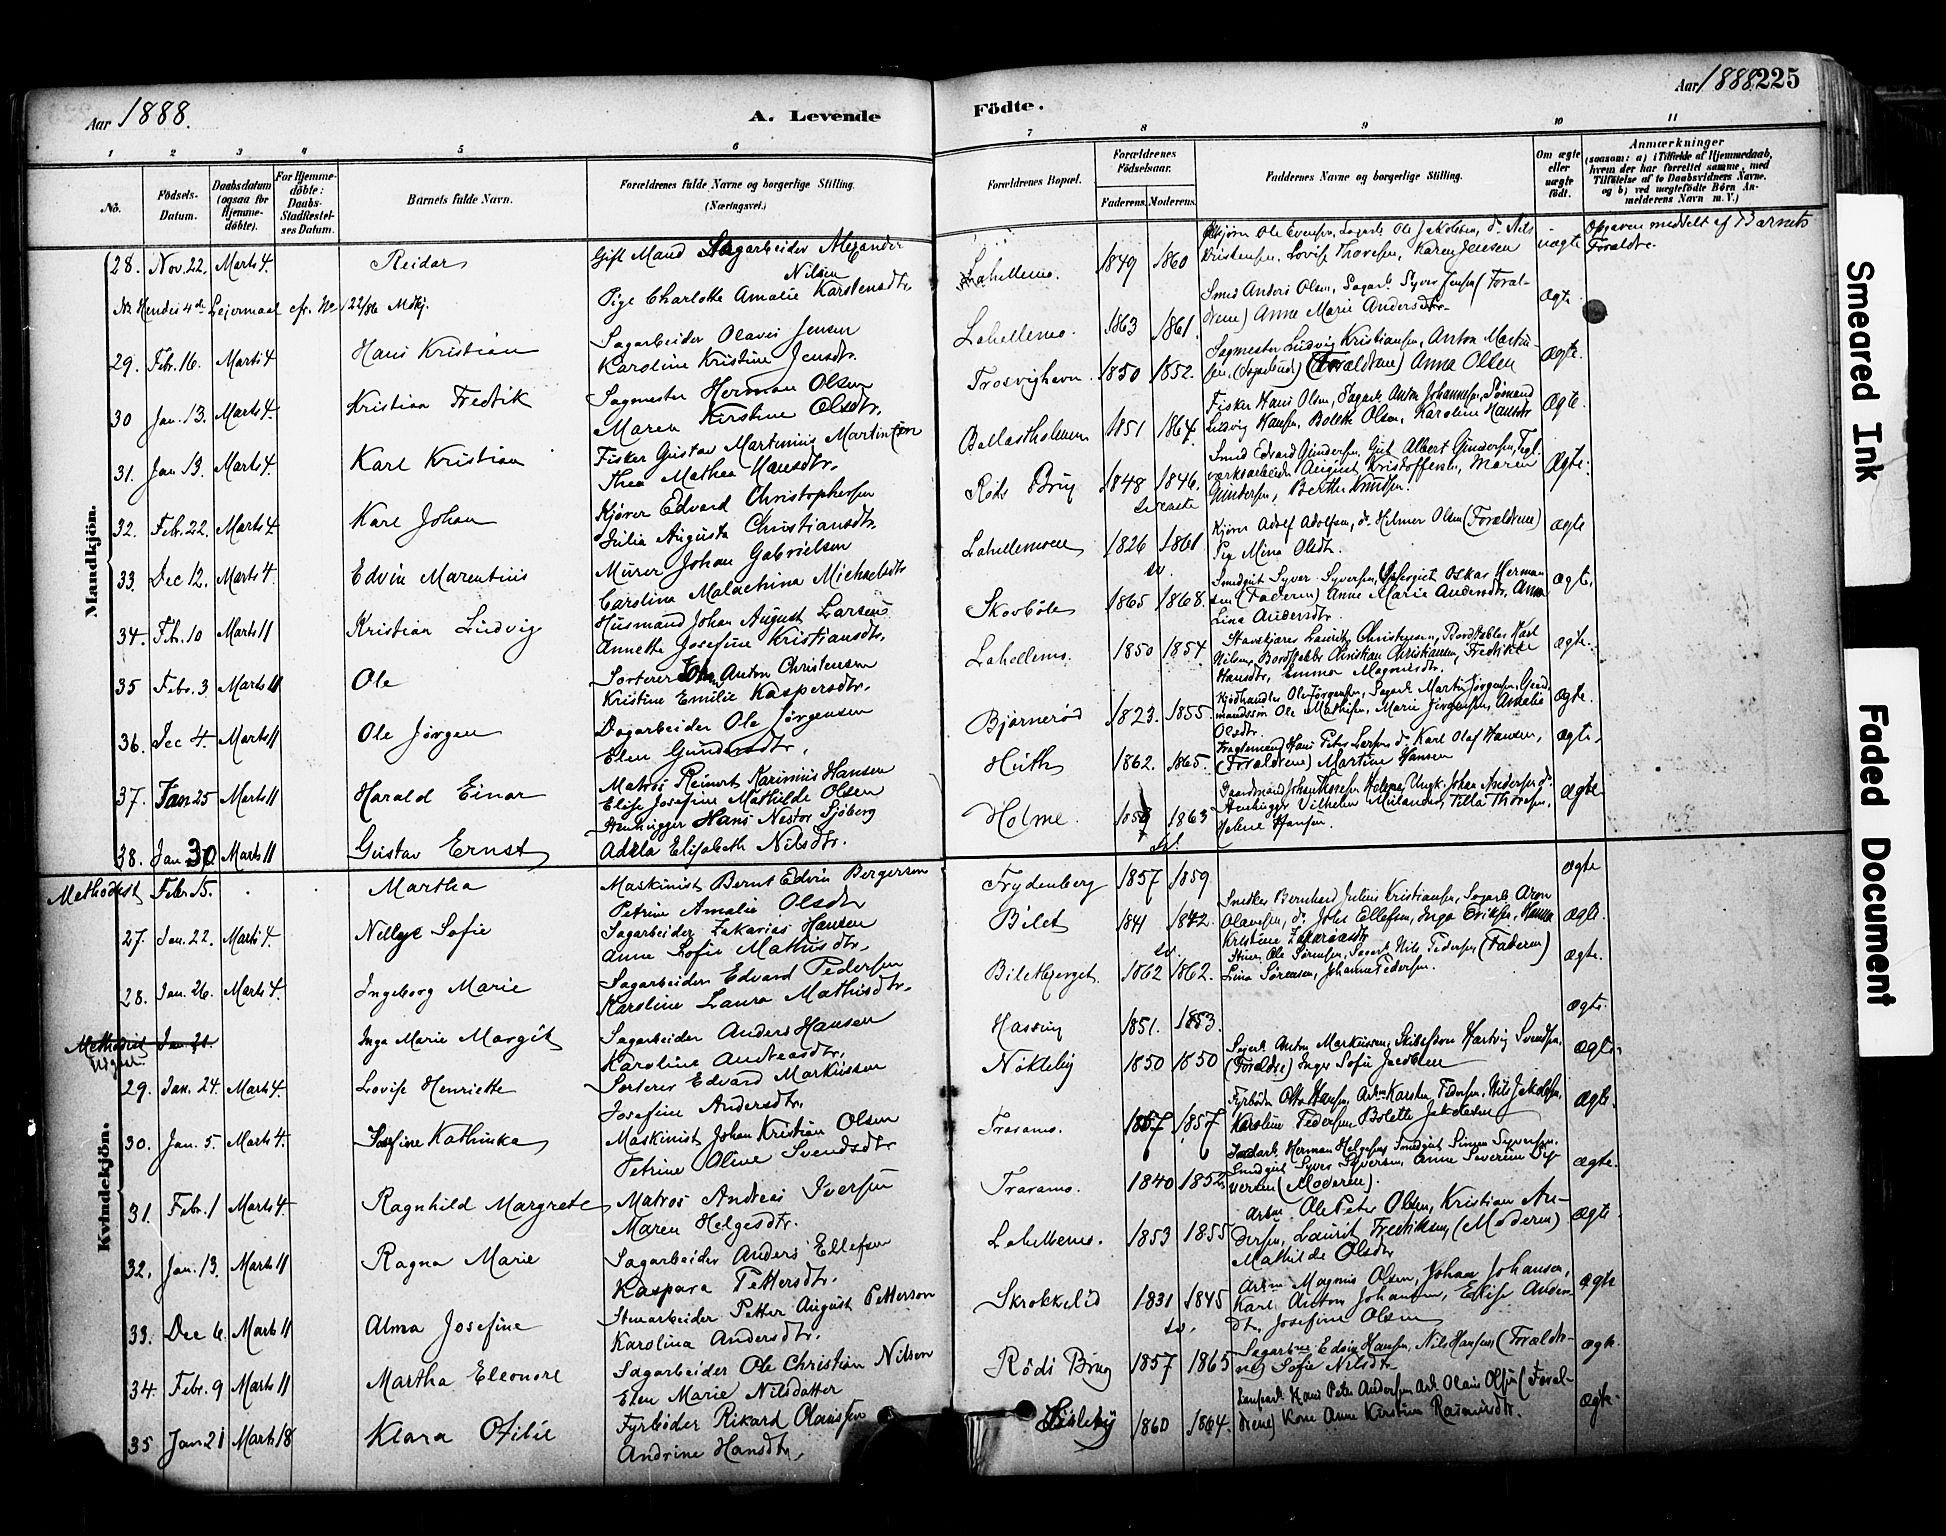 Aar 1888.
A. Levende
Födte.
Aar 1888. 225
1 2 3 4 5 6 7 8 9 10 11
No.
Födsels-Datum.
Daabsdatum (ogsaa for Hjemme-döbte).
For Hjemme-döbte: Daabs-Stadfæstel-ses Datum.
Barnets fulde Navn.
Forældrenes fulde Navne og borgerlige Stilling. (Næringsvei.)
Forældrenes Bopæl.
Forældrenes Födselsaar.
Faderens. Moderens.
Faddernes Navne og borgerlige Stilling.
Om ægte eller uægte födt.
Anmærkninger
(saasom: a) i Tilfælde af Hjemmedaab, hvem der har forrettet samme, med Tilföielse af to Daabsvidners Navne, og b) ved uægtefödte Börn An-melderens Navn m. V.)
Mandkjön.
28. Nov. 22. Marts 4. Reidar Gift Mand Sagarbeider Alexander Nilsen
Pige Charlotte Amalie Karstensdtr. Lahellemo. 1849 1860 uægte Opgaven meddelt af Barnets Forældre.
Kristensen, Lovise Thoresen, Karen Jensen
29. Febr. 16. Marts 4 Hans Kristian Sagarbeider Olaves Jensen
Karoline Kristine Jensdtr. Lahellemo. 1863 1861. Smed Anders Olsen, Sagarb. Syver Jensen (Foræl-
drene) Anne Marie Andersdtr. Ægte.
30 Jan. 13. Marts 4. Kristian Fredrik Sagmester Herman Olsen
Maren Kirstine Olsdtr. Trosvighavn. 1850 1852. Sagmester Ludvig Kristiansen, Anton Martin-
sen, (Forældrene) Anna Olsen Ægte.
31. Jan 13. Marts 4. Karl Kristian Fisker Gustav Martinius Martinsen
Thea Mathea Hansdtr. Ballastholmen 1851 1864. Fisker Hans Olsen, Sagarb. Anton Johannesen, Sömand
Ludvig Hansen, Bolette Olsen, Karoline Hansdtr Ægte.
32. Febr. 22. Marts 4 Karl Johan Kjörer Edvard Christophersen
Julia Augusta Christiansdtr. Röds Brug 1848 1846. Smed Edvard Gundersen, Gut Albert Gundersen, Tegl-
værksarbeider August Kristoffersen, Maren
Gundersen, Berthe Knudsen. Ægte.
33. Dec 12. Marts 4. Edvin Marentius Murer Johan Gabrielsen
Carolina Malachina Michaelsdtr Lahellemoen 1826 1861 Kjörer Adolf Adolfsen, do. Hilmer Olsen (Forældrene)
Pige Mina Olsdtr. Ægte
34. Feb. 10 Marts 11 Kristian Ludvig Husmand Johan August Larsen
Annette Josefine Kristiansdtr. Skovböle 1865 1868. Smedgut Syver Syversen, Oskar Herman-
sen (Faderen) Anne Marie Andersdtr, Anna
Lina Andersdtr. ægte.
35 Febr. 3 Marts 11 Ole Sorterer Anton Christensen
Kristine Emilie Kaspersdtr. Lahellemo. 1850 1854 Lauritz Christensen, Bordstabler Karl
Nilsen, Bordstabler Christian Christiansen, Fredrikke
Hansdtr, Emma Magnusdtr. ægte.
36. Dec 4. Marts 11 Ole Jörgen Dagarbeider Ole Jörgensen
Elen Gundersdtr. Bjørnerød 1823. 1855. Kjødhandler Ole Jørgensen, Sagarb. Martin Jörgensen, Gaard-
mandssön Ole Mathisen, Marie Jörgensen, Amalie
Olsdtr. ægte.
37. Jan 25 Marts 11 Harald Einar Matros Reinert Karinius Hansen
Elise Josefine Mathilde Olsen Huth 1862. 1865. Fragtemand Hans Peter Larsen do Karl Olaf Hansen,
(Forældrene) Martine Hansen ægte.
38. Jan 30 Marts 11 Gustav Ernst Stenhugger Hans Nestor Sjöberg
Adela Elisabeth Nilsdtr. Holme. 1863
Stenhugger Vilhelm Milander, Tilla Thoresen,
Helene Hansen. ægte
Kvindekjön.
Methodist Febr. 15. Martha Maskinist Bernt Edvin Bergersen
Petrine Amalie Olsdtr Frydenberg 1857 1859 ægte
27. Jan. 22. Marts 4. Nellye Sofie Sagarbeider Zakarias Hansen
Anne Sofie Mathisdtr. Bilet 1841 1842. Snedker Bernhard Julius Kristiansen, Sagarb. Aron
Olaussen, do. Johs Ellefsen, Inga Eriksen, Hanna
Kristine Zakariasdtr ægte.
28. Jan. 26. Marts 4. Ingeborg Marie Sagarbeider Edvard Pedersen
Karoline Laura Mathisdtr. Biletberget 1862 1862. Ole Sörensen, Sagarb. Nils Pedersen (Faderen)
Lina Sörensen, Johanna Pedersen. ægte.
Methodist Jan 21. Inga Marie Margit Sagarbeider Anders Hansen
Karoline Andreasdtr. Hassing 1851. 1853. ægte.
29. Jan. 24 Marts 4. Lovise Henriette Sorterer Edvard Markussen
Josefine Andersdtr. Nökleby 1850 1850 Sagarb. Anton Markussen, Hartvig Svendsen,
(Forældre) Inger Sofie Jacobsen ægte.
30. Jan. 5. Marts 4. Josefine Kathinka Maskinist Johan Kristian Olsen
Petrine Oline Svendsdtr Traramo. 1857 1857 Fyrböder Otto Hansen, Arbm Karsten Pedersen, Nils Jakobsen,
Karoline Pedersen Bolette Jakobsen ægte.
31. Febr. 1 Marts 4. Ragnhild Margrete Matros Andreas Iversen
Maren Helgesdtr. Traramo. 1840 1852. Herman Helgesen, Smedgut Simen Syversen.
Smedgut Syver Syversen, Anne Severine Sy-
versen (Moderen). ægte.
32. Jan. 13. Marts 11 Ragna Marie Sagarbeider Anders Ellefsen
Kaspara Pettersdtr. Lahellemo. 1853 1855 Arbm. Ole Peter Olsen, Kristian An-
dersen, Laurits Fredriksen, (Moderen)
Mathilde Olsdtr ægte.
33. Dec 6. Marts 11 Alma Josefine Stenarbeider Petter August Petterson
Karolina Andersdtr. Skrokkelid 1831 1845 Arbm Magnus Olsen, Johan Johansen,
Karl Anton Johansen, Elise Anders-
dtr, Josefine Olsen ægte
34 Febr. 9 Marts 11 Martha Eleonore Sagarbeider Ole Christian Nilsen
Elen Marie Nilsdatter Röds Brug 1857 1865 Sagarbm Edvin Hansen, Nils Hansen (Forældre-
ne) Sofie Nilsdtr ægte.
35 Jan 21 Marts 18 Klara Otilie Fyrböder Rikard Olaussen
Andrine Hansdtr. Lisleby 1860 1864. Hans Peter Andersen Arb. Olaus Olsen (Foræl-
drene) Kone Anne Kirstine Rasmusdtr. ægte
Smeared Ink
Faded Document